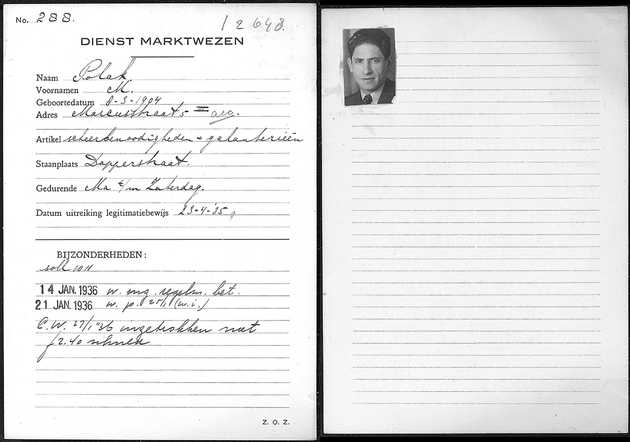 No. 288.
12648.
DIENST MARKTWEZEN
Naam Polak
Voornamen M.
Geboortedatum 8-3-1904
Adres Marcusstraat 5
Artikel scheerbenoodigheden + galanterieën
Staanplaats Dapperstraat.
Gedurende Ma t/m Zaterdag.
Datum uitreiking legitimatiebewijs 23-4-'35,
BIJZONDERHEDEN:
soll
14 JAN. 1936 w. mg. regelm. bet.
21 JAN. 1936 w. p. (w.i.)
C.W. 27/1 '36 ingetrokken met
f2.40 schuld
Z. O. Z.